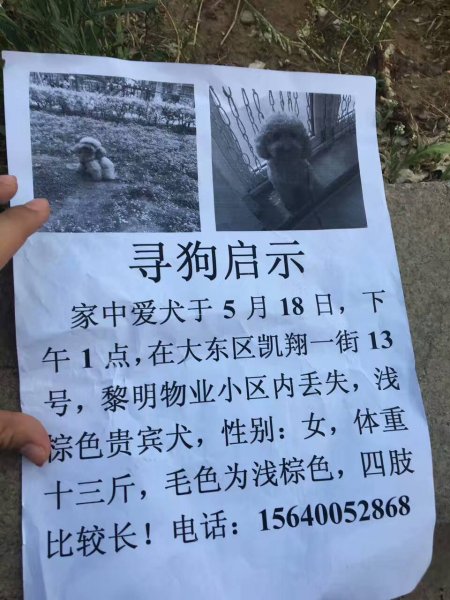 寻狗启示
家中爱犬于 5 月 18 日，下
午 1 点，在大东区凯翔一街 13
号，黎明物业小区内丢失，浅
棕色贵宾犬，性别：女，体重
十三斤，毛色为浅棕色，四肢
比较长！电话：15640052868